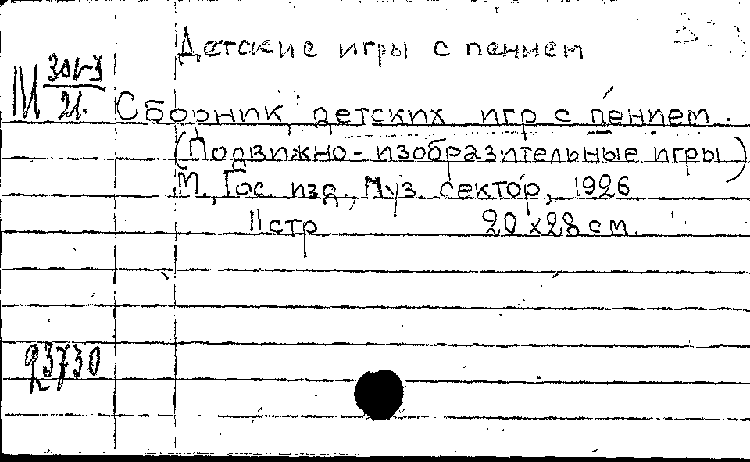 Детские игры с пением
М 301-3
21.
Сборник детских игр с пением.
(Подвижно-изобразительные игры)
М., Гос. изд., Муз. сектор, 1926
11 стр 20 x 28 см.
93730